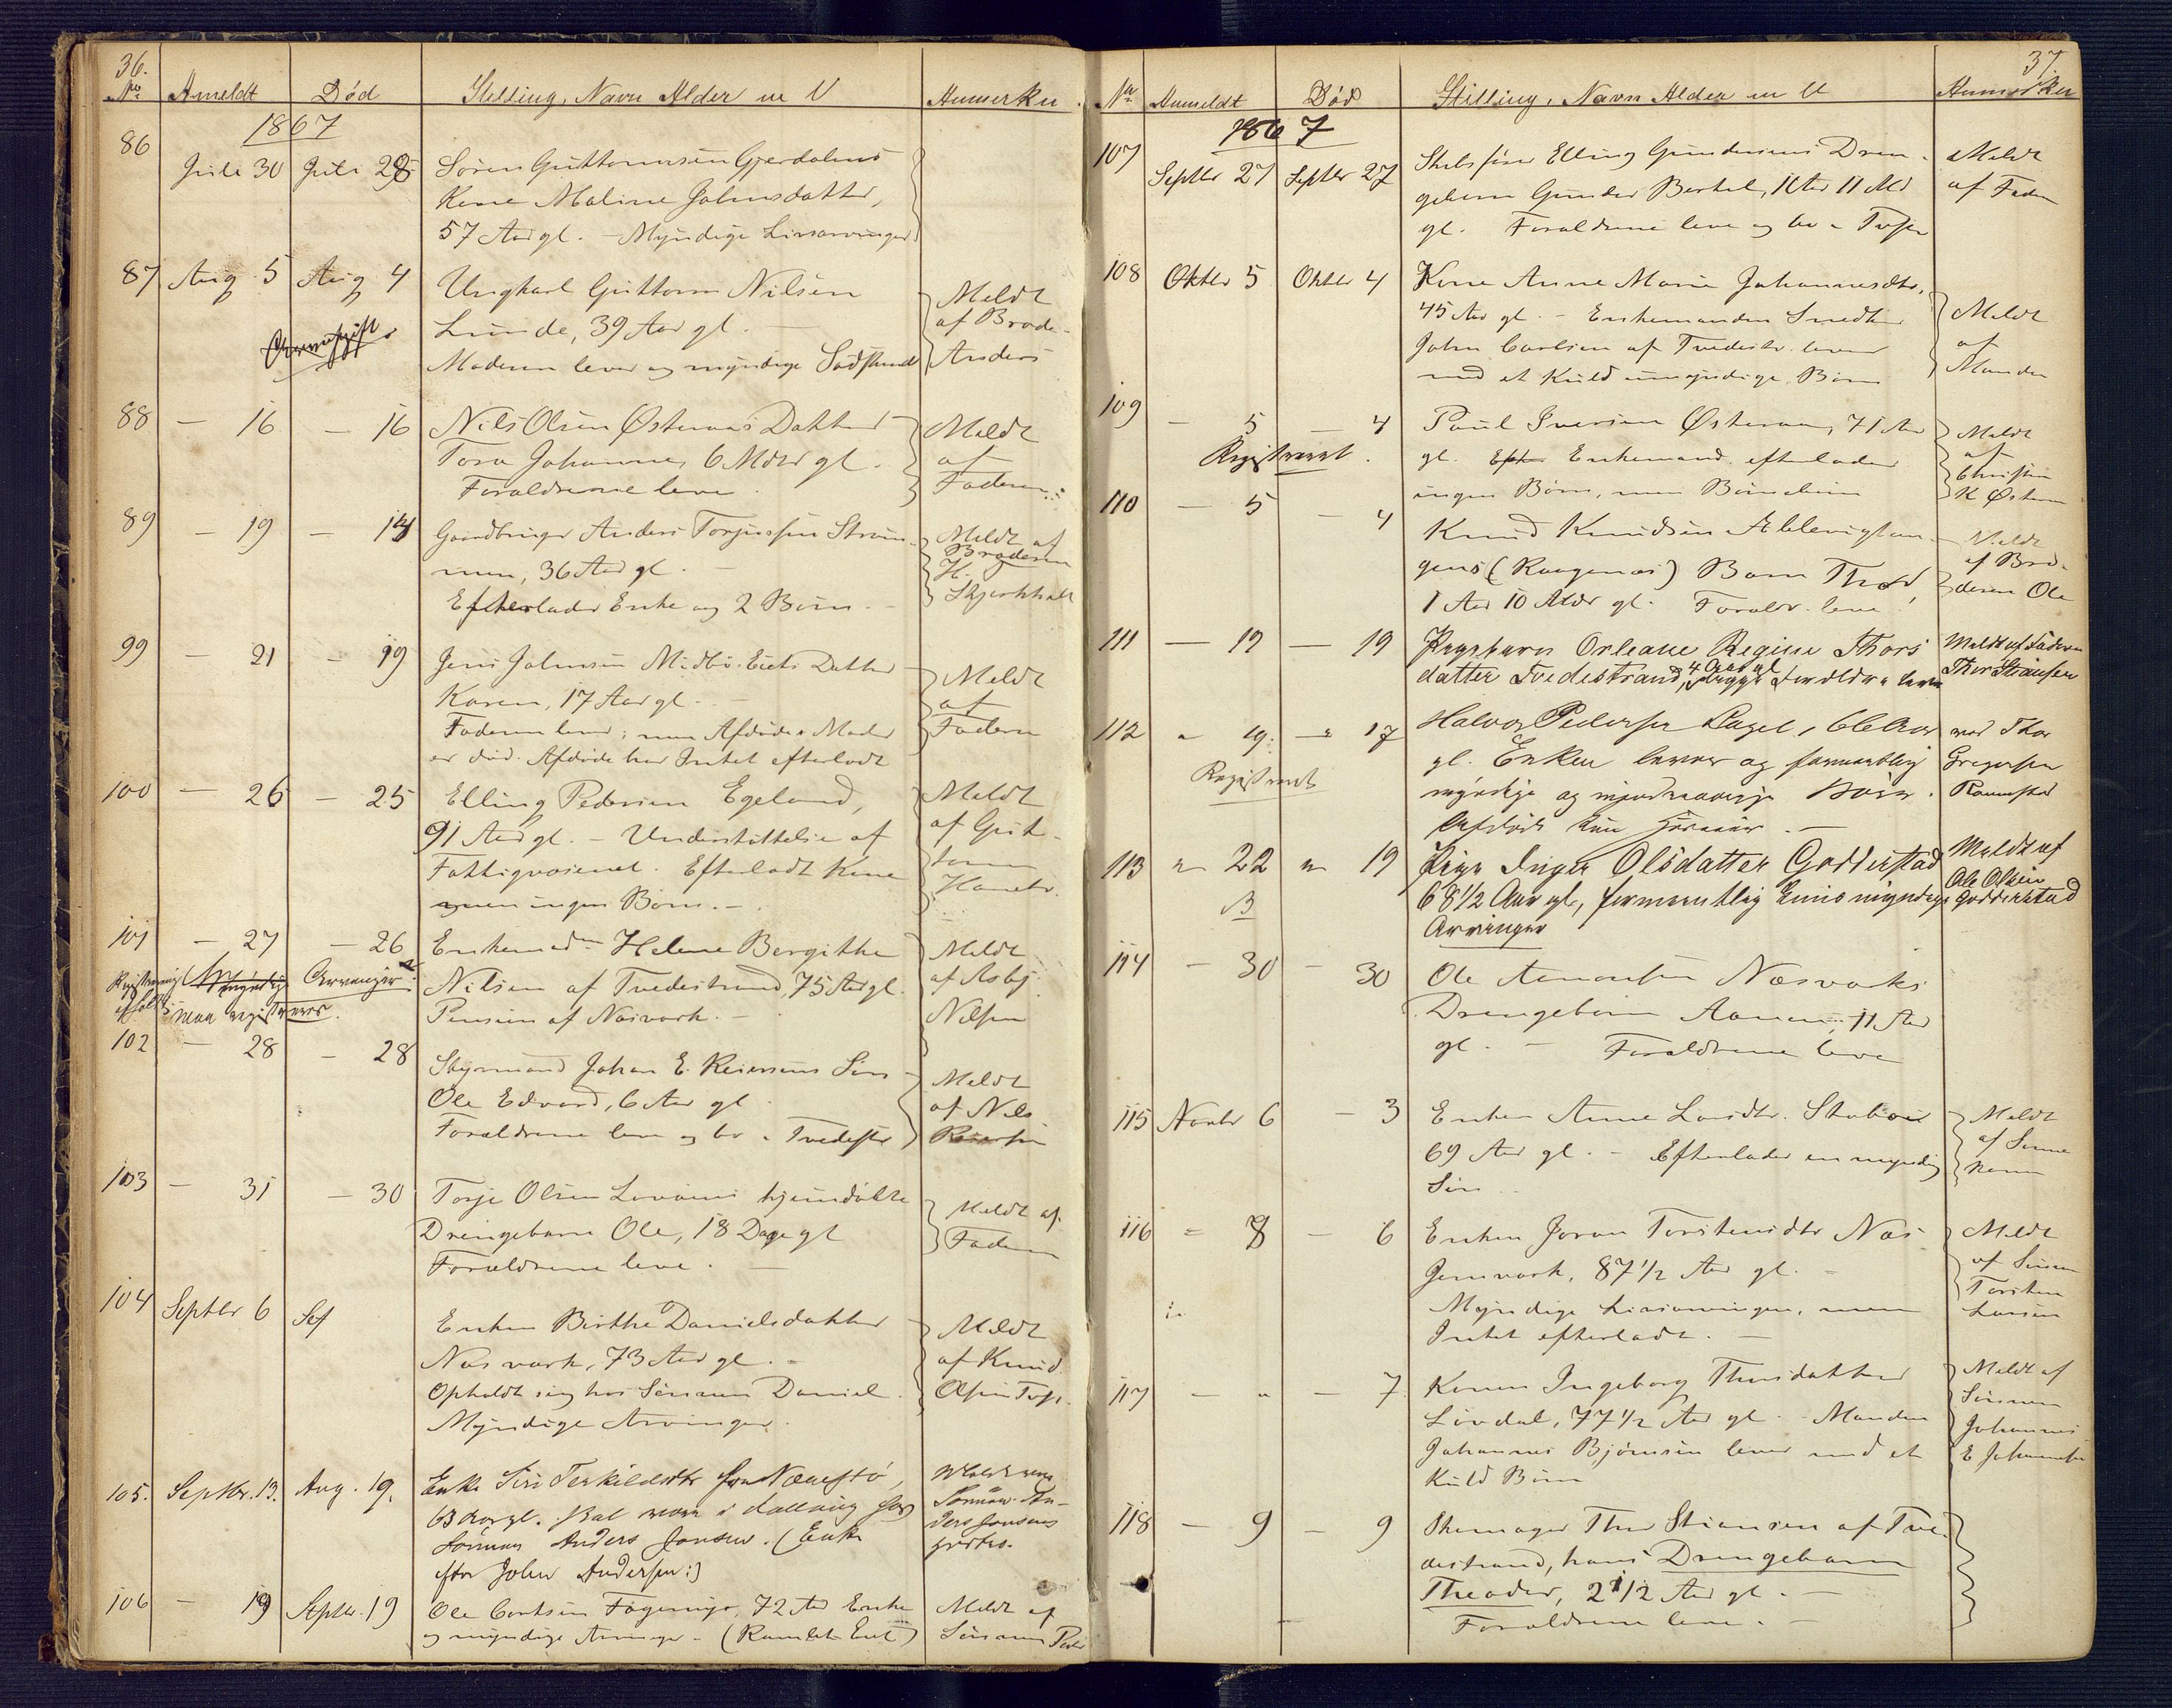 36.
No Anmeldt Død Stilling, Navn Alder m V Anmerkn.
1867
86 Juli 30 Juli 28 Søren Guttormsen Gjerdalens
Kone Maline Johnsdatter,
57 Aar gl. - Myndige Livsarvinger
87 Aug 5 Aug 4 Ungkarl Guttorm Nilsen
Lunde, 39 Aar gl.
Moderen lever og myndige Sødskende
Meldt
af Brode-
Anders
88 - 16 - 16 Nils Olsen Østeraas Datter
Tora Johanne, 6 Mdr gl.
Forældrene leve.
Meldt
af
Faderen
89 - 19 - 14 Gaardbruger Anders Torjussen Strøm-
men, 36 Aar gl. -
Efterlader Enke og 2 Børn. -
Meldt af
Broderen
H.
99 - 21 - 19 Jens Johnsen Midbø Eiets Datter
Karen, 17 Aar gl. -
Faderen lever; men Afdødes Moder
er død. Afdøde har Intet efterladt
Meldt
af
Faderen
100 - 26 - 25 Elling Pedersen Egeland,
91 Aar gl. - Understøttelse af
Fattigvæsenet. Efterladt Kone
men ingen Børn. -
Meldt
af Gut-
torm
101 - 27 - 26 Enkemadm Helene Bergithe
Nilsen af Tvedestrand, 75 Aar gl.
Pension af Næsværk. -
Meldt
af Asbj.
Nilsen
Arvinger.
maa registreres.
102 - 28 - 28 Styrmand Johan E. Reiersens Søn
Ole Edvard, 6 Aar gl
Forældrene leve og bo i Tvedestr
Meldt
af Nils
Reiersen
103 - 31 - 30 Torje Olsen Løvaas's hjemdøbte
Drengebarn Ole, 18 Dage gl
Forældrene leve. -
Meldt af
Faderen
104 Septbr 6 Sep Enken Birthe Danielsdatter
Næsværk, 73 Aar gl. -
Opholdt sig hos Sønnen Daniel.
Myndige Arvinger.
Meldt
af Knud
Olsen
105. Septbr. 13. Aug. 19. Enke Siri Terkildsdtr fra Næs
63 Aar gl. Skal være i
Sønnen Anders Jonsen. (Enke
efter John Andersen:)
Sønnen An-
ders Jonsens
106 - 19 Septbr. 19 Ole Bentsen 72 Aar Enke
og myndige Arvinger - (Ramlet Eiet)
Meldt af
Sønnen Peder
37.
No Anmeldt Død Stilling, Navn Alder m V Anmerkn
1867
107 Septbr 27 Septbr 27 Skibsfører Elling Gundersens Dren-
gebarn Gunder Bertel, 1 Aar 11 Md
gl. Forældrene leve og bo i
Meldt
af Fader
108 Oktbr 5 Oktbr 4 Kone Anne Marie Johannesdtr,
45 Aar gl. - Enkemanden Snedker
John Carlsen af Tvedestr. lever
med et Kuld umyndige Børn
Meldt
af
Manden
109 - 5 - 4 Poul Iversen Østeraa, 71 Aar
gl. Enkemand. efterlader
ingen Børn, men Børnebørn
Registreret.
Meldt
af
Christen
K Øster
110 - 5 - 4 Knud Knudsen
gens (Kragenæs) Barn Thor
1 Aar 10 Mdr gl. Forældr. leve
Meldt
af Bro-
deren Ole
111 - 19 - 19 Pigebarn Orleane Regine Thors
datter Tvedestrand, 4 Aar gl begge Forældre leve
Meldt af Faderen
Thor Stiansen
112 " 19. - " 17 Halvor Pedersen Laget, 66 Aar
gl. Enken lever og formentlig
myndige og mindreaarige Børn.
Registreret
ved Thor
Gregersen
Ramstad
113 " 22 " 19 Pige Inger Olsdatter Godderstad
68 1/2 Aar gl, formentlig kuns myndige
Arvinger
Meldt af
Ole Olsen
Godderstad
114 - 30 - 30 Ole Aanonsen Næsværks
Drengebarn Aanon, 11 Aar
gl. - Forældrene leve
115 Novbr 6 - 3 Enken Anne Larsdtr.
69 Aar gl. - Efterlader en myndig
Søn.
Meldt
af Sønne
116 = 8 - 6 Enken Joran Torstensdtr Næs
Jernværk, 87 1/2 Aar gl. -
Myndige Livsarvinger, men
Intet efterladt. -
Meldt
af Sønnen
Torsten
Larsen
117 - " - 7. Konen Ingeborg Thorsdatter
Løvdal, 77 1/2 Aar gl. - Manden
Johannes Bjørnsen lever med et
Kuld Børn
Meldt af
Sønnen
Johannes
E Johannesen
118 - 9 - 9 Skomager Thor Stiansen af Tve-
destrand, hans Drengebarn
Theodor, 2 1/2 Aar gl. -
Forældrene leve. -